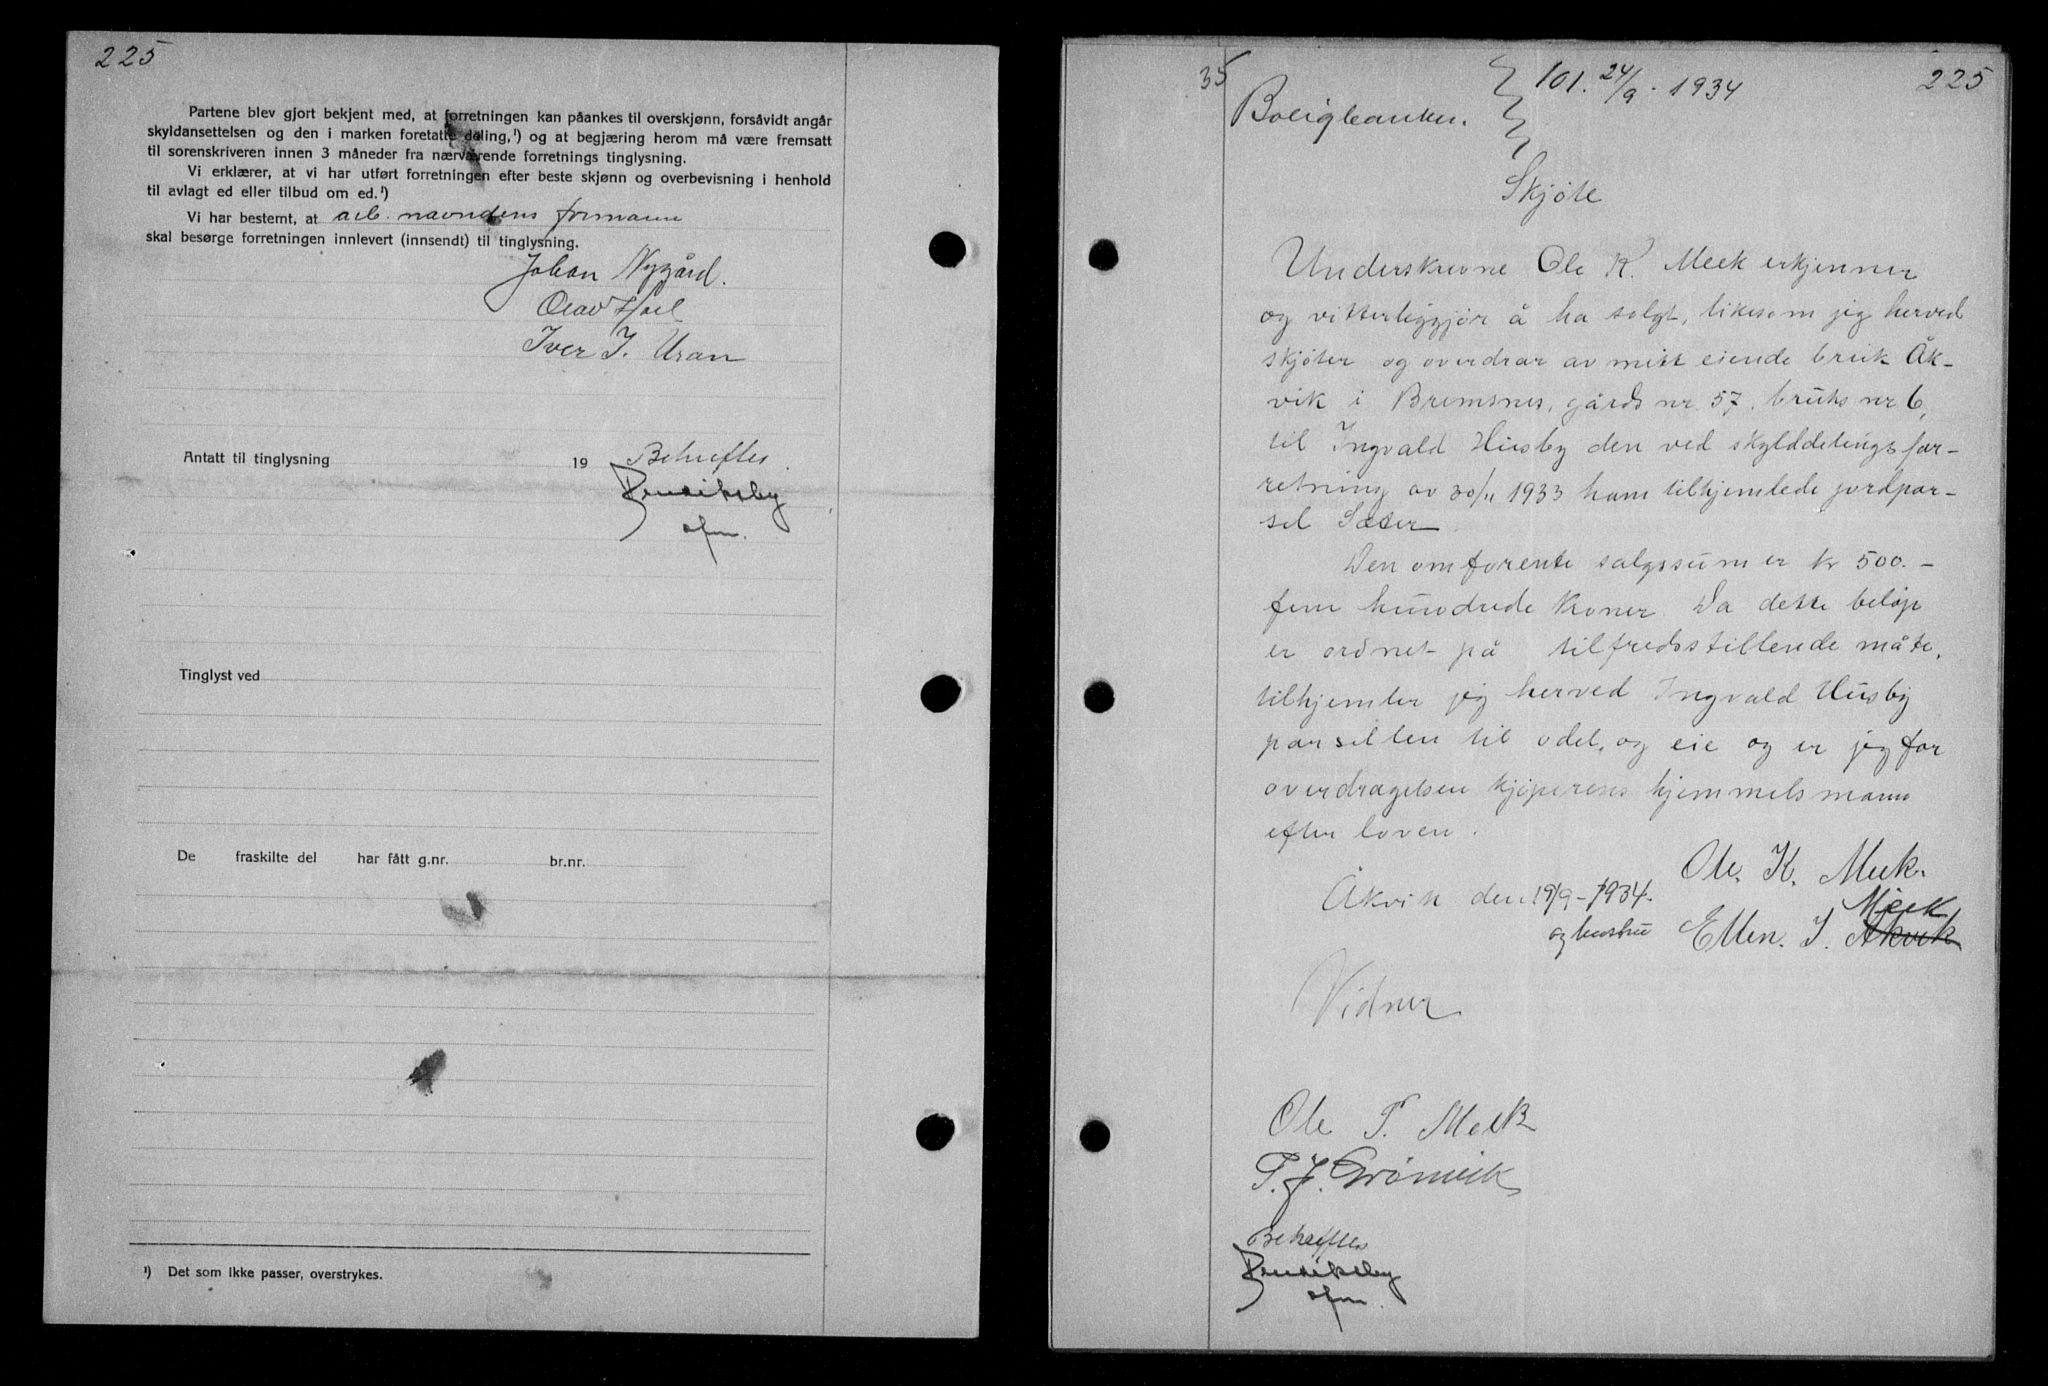 225
Partene blev gjort bekjent med, at forretningen kan påankes til overskjønn, forsåvidt angår
skyldansettelsen og den i marken foretatte deling,¹) og at begjæring herom må være fremsatt
til sorenskriveren innen 3 måneder fra nærværende forretnings tinglysning.
Vi erklærer, at vi har utført forretningen efter beste skjønn og overbevisning i henhold
til avlagt ed eller tilbud om ed.¹)
Vi har bestemt, at arb. navndens formann
skal besørge forretningen innlevert (innsendt) til tinglysning.
Johan Nygård.
Olav Hoel
Iver I. Uran
Antatt til tinglysning 19
Bekreftes.
ofm.
Tinglyst ved
De fraskilte del har fått g.nr. br.nr.
¹) Det som ikke passer, overstrykes.
35
101. 24/9. 1934
225
Boligbanken.
Skjøte
Underskrevne Ole K. Meek erkjenner
og vitterliggjør å ha solgt, likesom jeg herved
skjøter og overdrar av mitt eiende bruk Åk-
vik i Bremsnes, gårds nr. 57, bruks nr 6,
til Ingvald Husby den ved skylddelingsfor-
retning av 30/11 1933 ham tilhjemlede jordpar-
sel Sæter
Den omforente salgssum er kr 500.-
fem hundrede kroner. Da dette beløp
er ordnet på tilfredsstillende måte,
tilhjemler jeg herved Ingvald Husby
parsellen til odel, og eie og er jeg for
overdragelsen kjøperens hjemmelsmann
efter loven.
Ole. K. Meek.
Åkvik den 19/9-1934.
Meek
og hustru Ellen. I. Åkvik
Vidner
Ole P. Meek
P. J. Grønvik
Bekreftes
ofm.